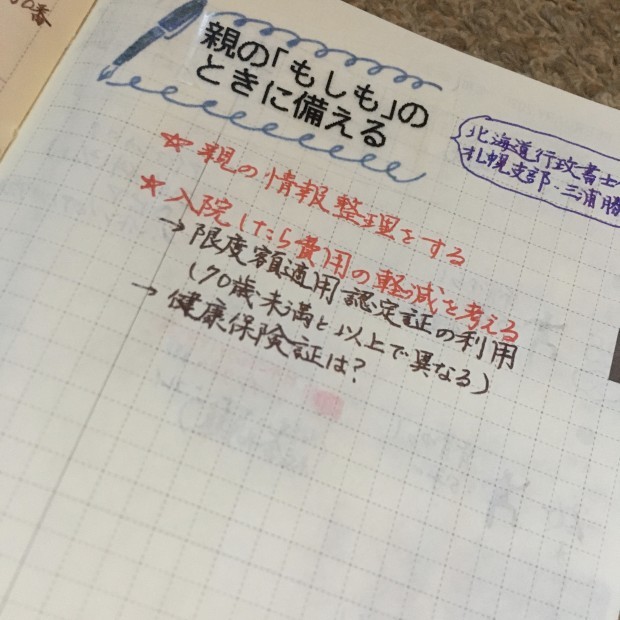 0番
親の「もしも」の
ときに備える
北海道行政書士
札幌支部・三浦勝
☆親の情報整理をする
★入院したら費用の軽減を考える
→限度額適用認定証の利用
(70歳未満と以上で異なる)
→健康保険証は?